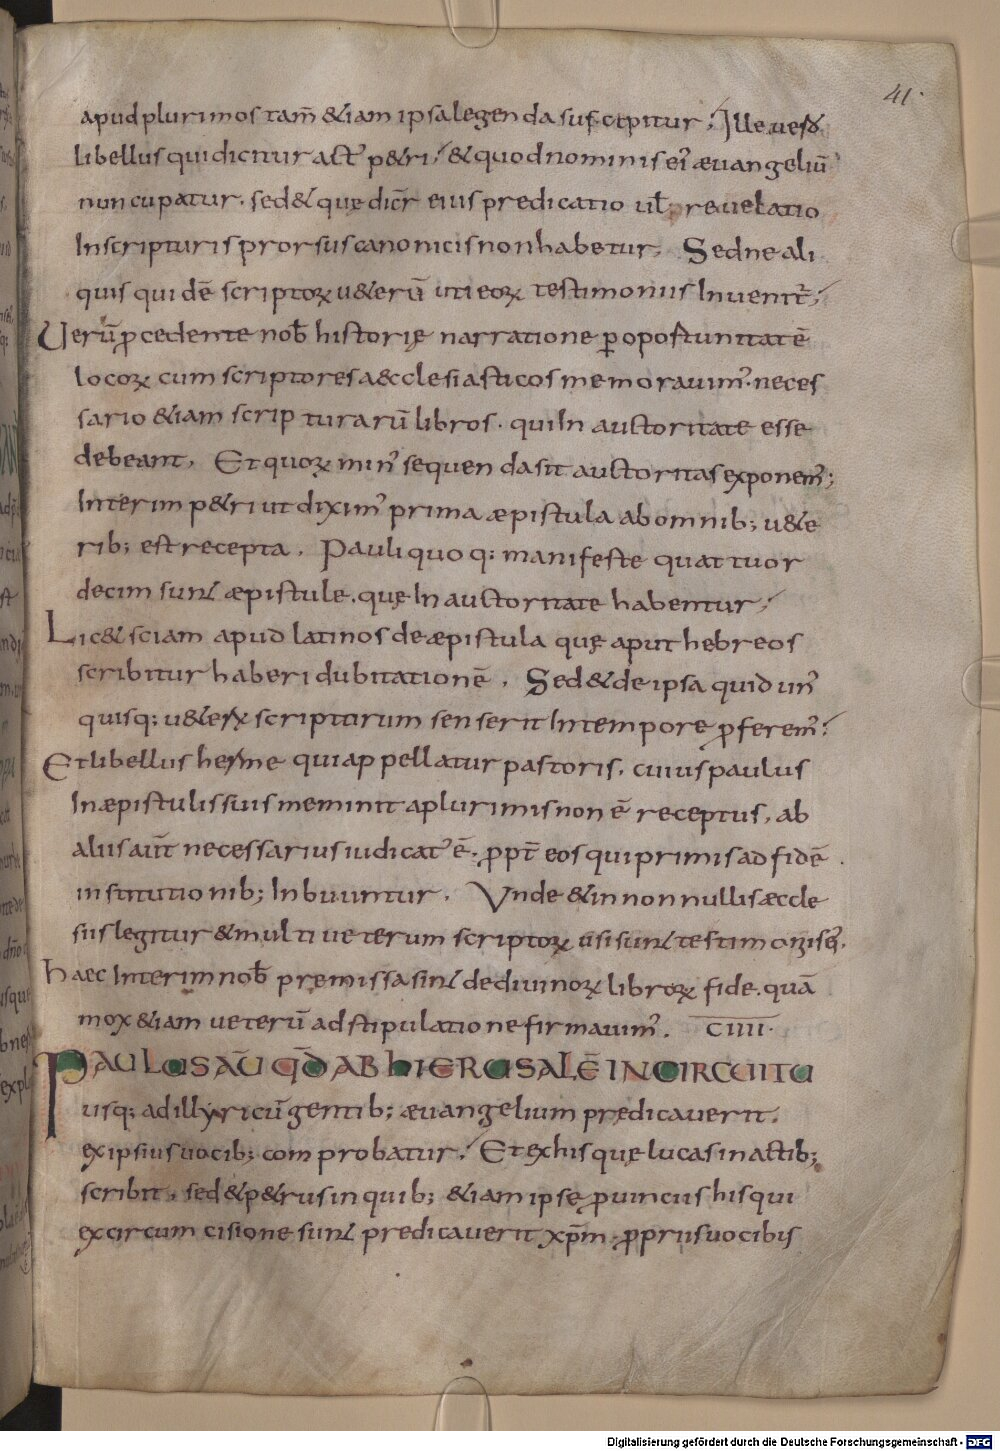 41.
apud plurimos tam̄ &iam ipsa legenda suscipitur; Ille uero
libellus qui dicitur act᾽ p&ri; & quod nominis ei᾽ æuangeliū
nuncupatur. sed& quę dicr̄ eius predicatio ul̄ reuelatio
Inscripturis prorsus canonicis non habetur. Sed ne ali
quis quidē scriptoꝝ u&erū uti eoꝝ testimoniis Inuenit᾽;
Uerū ꝓcedente nob̄ historię narratione ꝑ oportunitatē
locoꝝ cum scriptores æcclesiasticos memorauim᾽. neces
sario &iam scripturarū libros. qui In auctoritate esse
debeant. Et quoꝝ min᾽ sequenda sit auctoritas exponem᾽;
Interim p&ri ut dixim᾽ prima æpistula ab omnib; u&e
rib; est recepta. Pauli quoq; manifeste quattuor
decim sunt æpistule. quę In auctoritate habentur;
Lic& sciam apud latinos de æpistula quę aput hebreos
scribitur haberi dubitationē. Sed & de ipsa quid un᾽
quisq; u&erꝝ scriptorum senserit In tempore ꝓferem᾽;
Et libellus herme qui appellatur pastoris. cuius paulus
In æpistulis suis meminit a plurimis non ē receptus, ab
aliis aut̄ necessarius iudicat᾽ ē. ꝓpt̄ eos qui primis ad fidē
institutionib; Inbuuntur. Vnde & in nonnullis æccle
siis legitur & multi ueterum scriptoꝝ usi sunt testimoniis ei᾽.
haec Interim nob̄ premissa sint de diuinoꝝ libroꝝ fide. quā
mox &iam ueterū adstipulatione firmauim᾽. CIIII.
PAULUS AŪ QD̄ AB HIERUSALĒ IN CIRCUITU
usq; ad illyricū gentib; æuangelium prędicauerit.
ex ipsius uocib; comprobatur. Et ex his quę lucas in actib;
scribit. sed & p&rus in quib; &iam ipse ꝓuinciis his qui
ex circumcisione sunt predicauerit xp̄m. ꝓpriis uocibis
Digitalisierung gefördert durch die Deutsche Forschungsgemeinschaft - DFG